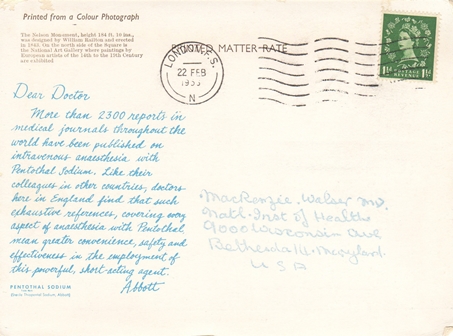 Printed from a Colour Photograph
The Nelson Monument, height 184 ft. 10 ins.,
was designed by William Railton and erected
in 1843. On the north side of the Square is
the National Art Gallery where paintings by
European artists of the 14th to the 19th Century
are exhibited
PRINTED MATTER RATE
LONDON F.S.
22 FEB
N
POSTAGE REVENUE
1½d 1½d
Dear Doctor
More than 2300 reports in
medical journals throughout the
world have been published on
intravenous anaesthesia with
Pentothal Sodium. Like their
colleagues in other countries, doctors
here in England find that such
exhaustive references, covering every
aspect of anaesthesia with Pentothal,
mean greater convenience, safety and
effectiveness in the employment of
this powerful, short-acting agent.
Abbott
PENTOTHAL SODIUM
(Sterile Thiopental Sodium, Abbott)
MacKenzie Walser MD.
Natl. Inst of Health
9000 Wisconsin Ave
Bethesda 14. Maryland.
USA